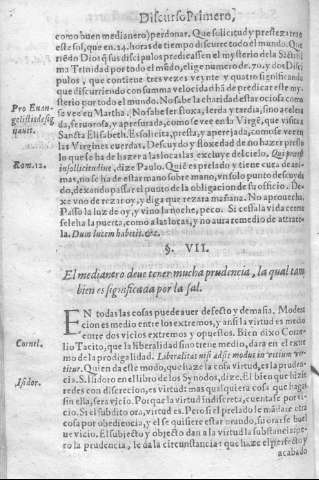 Discurso Primero,
como buen medianero) perdonar. Que solicitud y presteza trae
este sol, que en .24. horas de tiempo discurre todo el mundo. Que
riẽdo Dios q̃ sus discipulos predicassen el mysterio dela Sãctissi
ma Trinidad por todo el mũdo, elige numero de .70. y dos Disci
pulos, que contiene tres vezes veynte y quatro significando
que discurriendo con summa velocidad hã de predicar este my-
sterio por todo el mundo. No sabe la charidad estar ociosa como
se vee en Martha. No sabe ser floxa, lerda y tardia, sino acelera
da, feruorosa, y apresurada, como se vee en la Virgẽ, que visita
Sancta Elisabeth. Es solicita, presta, y aperejada, como se vee en
las Virgines cuerdas. Descuydo y floxedad de no hazer presto
lo que se ha de hazer a las locas las excluye del cielo. Qui præest
in sollicitudine, dize Paulo. Quiẽ es prelado y tiene cura de ani-
mas, no se ha de estar mano sobre mano, vn solo punto descuyda
do, dexando passar el punto de la obligacion de su officio. De-
xe vno de rezar oy, y diga que rezara mañana. No aprouecha.
Passo la luz de oy, y vino la noche, peco. Si cessa la vida cierra
sele ha la puerta, como a las locas, y no aura remedio de attraue
la. Dum lucem habetis. &c.
§. VII.
El medianero deue tener mucha prudencia, la qual tam
bien es significada por la sal.
EN todas las cosas puede auer defecto y demasia. Modera
cion es medio entre los extremos, y ansi la virtud es medio
entre dos vicios extremos y opuestos. Bien dixo Corne
lio Tacito, que la liberalidad sino tiene medio, dara en el extre
mo de la prodigalidad. Liberalitas nisi adsit modus in vitium ver-
titur. Quien da este modo, que haze la cosa virtud, es la pruden-
cia. S. Isidoro en el libro de los Synodos, dize. El bien que hizie
redes con discrecion, es virtud: mas qualquiera cosa que hagays
sin ella, sera vicio. Porque la virtud indiscreta, cuentase por vi-
cio. Si el subdito ora, virtud es. Pero si el prelado le mãda otra
cosa por obediencia, y el se quisiere estar orando, su orar se buel
ue vicio. El subjecto y objecto dan a la virtud la substancia: pe-
ro la prudencia, le da la circunstancia: que haze el perfecto y
acabado
Pro Euan-
gelistis desig
nauit.
Rom. 12.
Cornel.
Isidor.